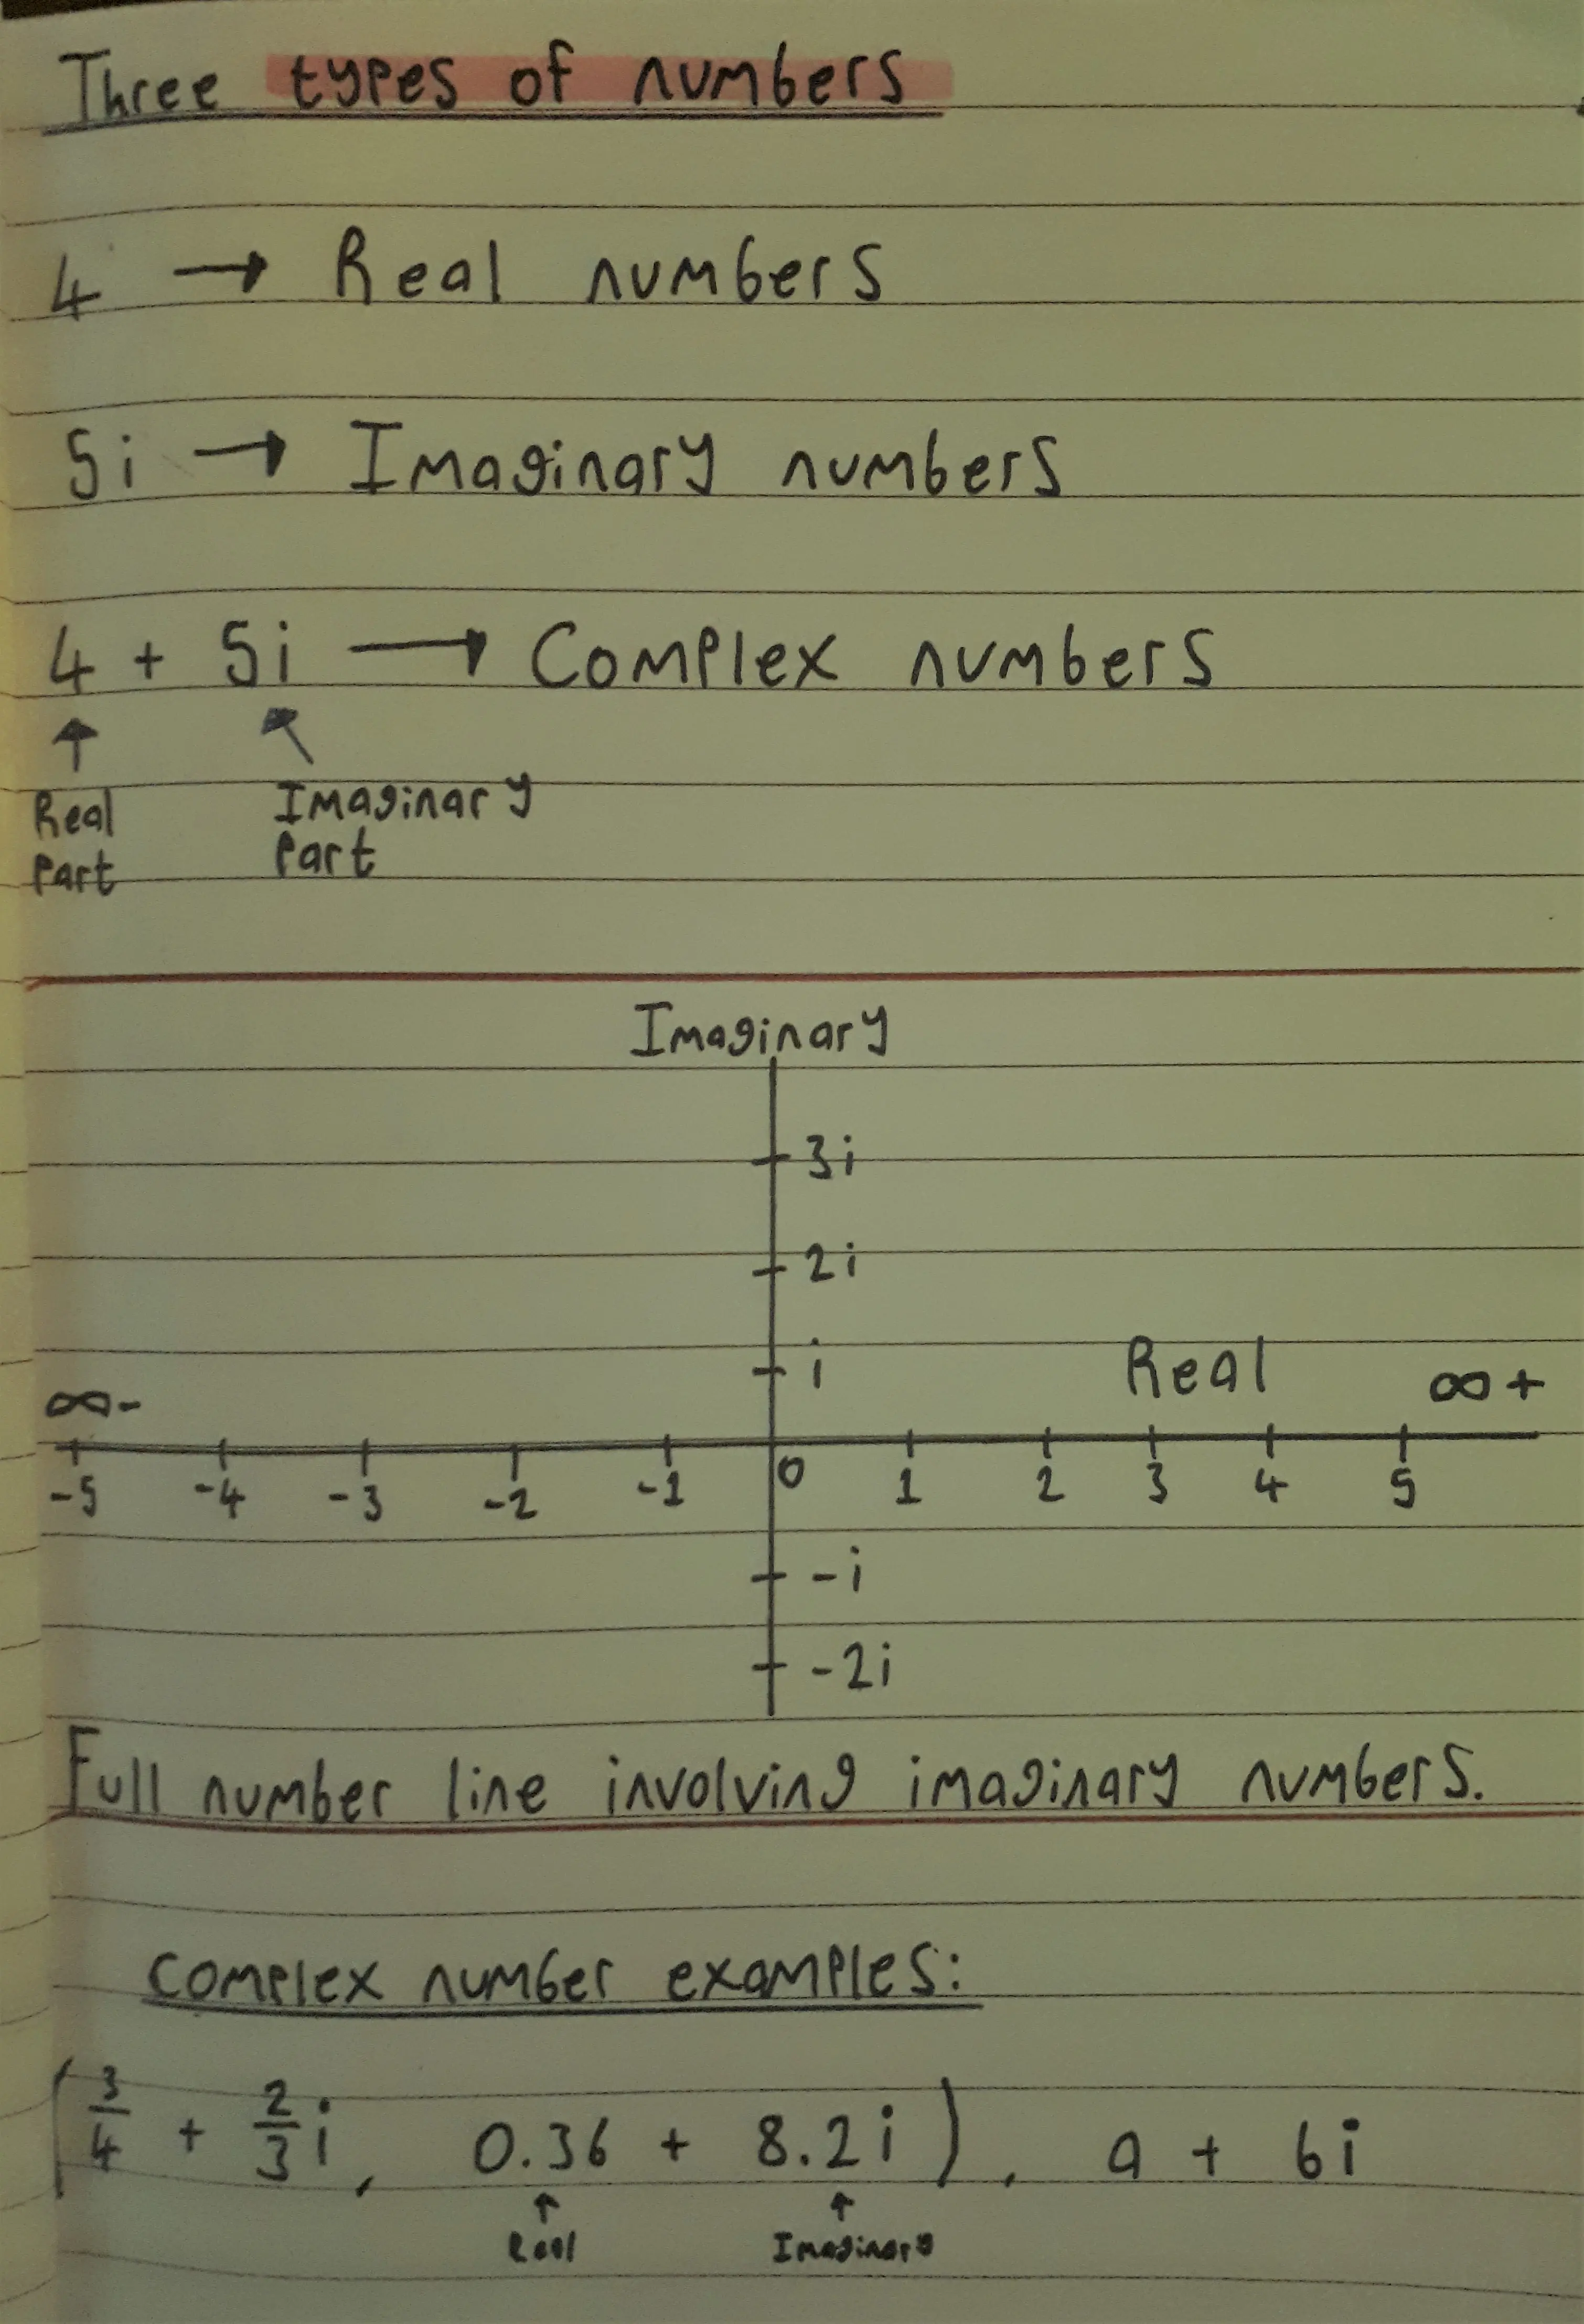 Three types of numbers
4 → Real numbers
5i → Imaginary numbers
4 + 5i → Complex numbers
↑ ↖
Real Imaginary
Part Part
Imaginary
3i
2i
i
Real
∞- ∞+
-5 -4 -3 -2 -1 0 1 2 3 4 5
-i
-2i
Full number line involving imaginary numbers.
Complex number examples:
(3/4 + 2/3 i, 0.36 + 8.2i), a + bi
↑ ↑
Real Imaginary